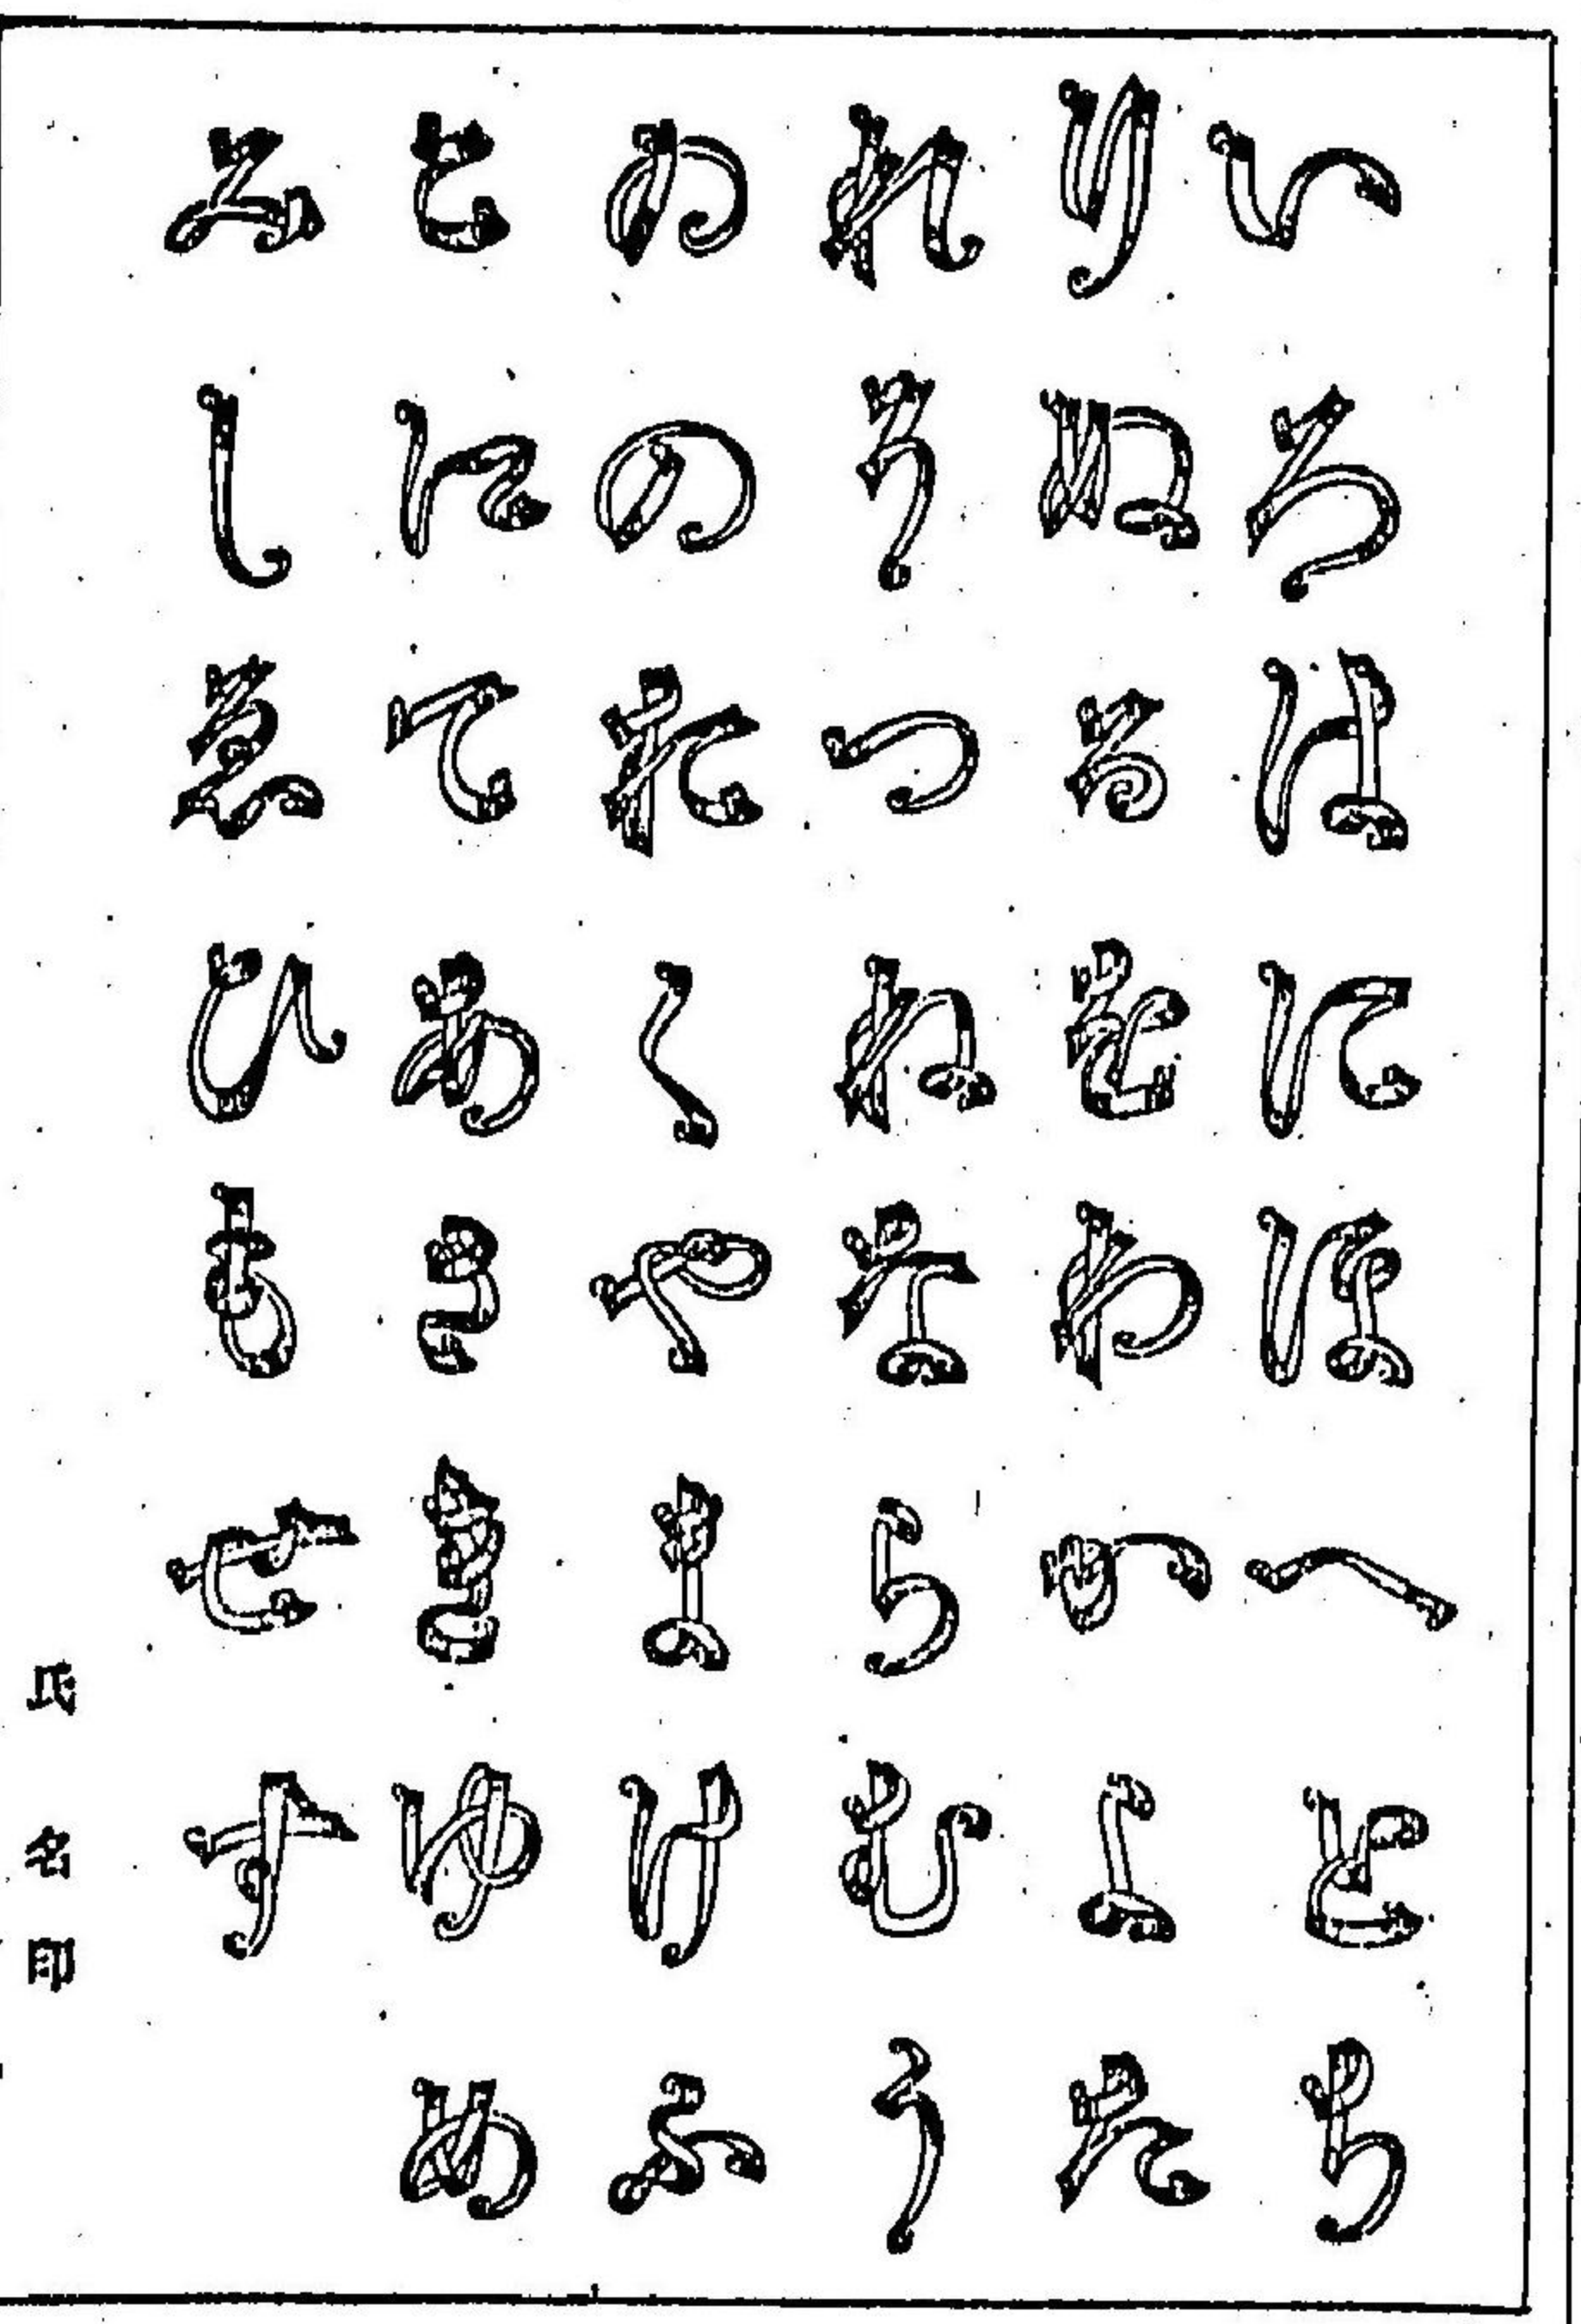 いろはにほへとち
りぬるをわかよた
れそつねならむう
ゐのおくやまけふ
こえてあさきゆめ
みしゑひもせす
氏名印